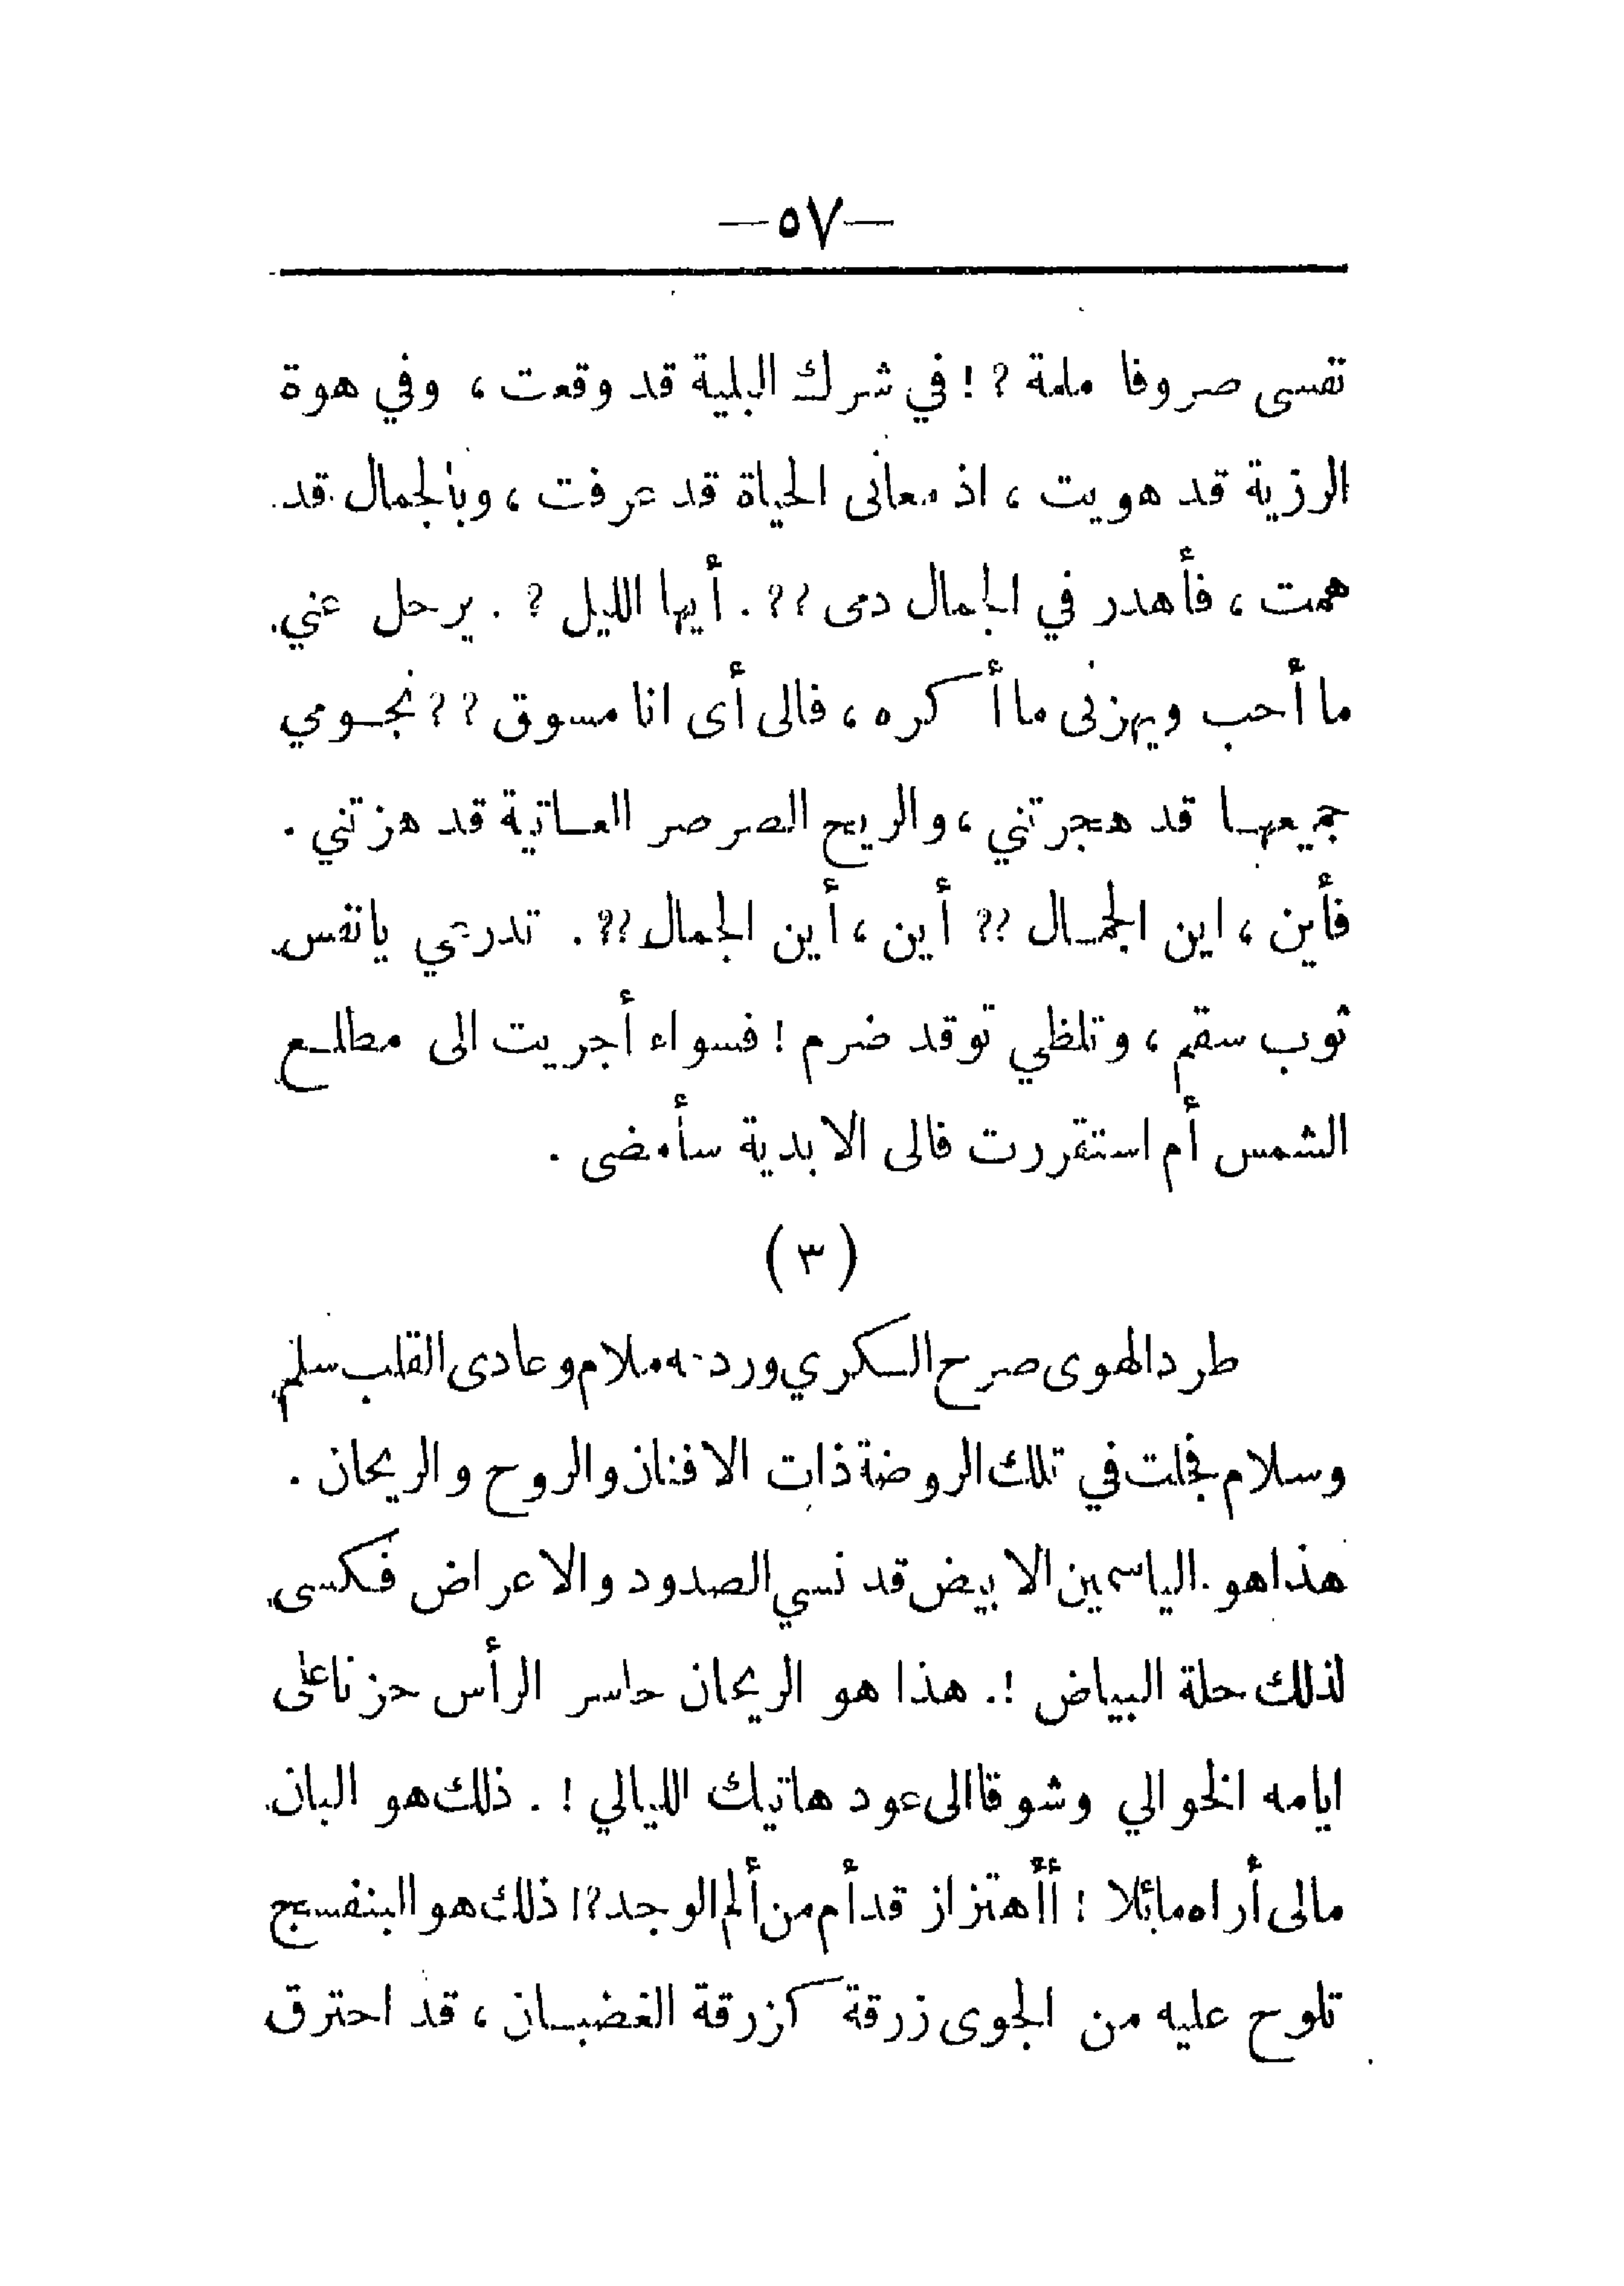 —٥٧—
تفسى صروفا ملمة ? ! في شرك البلية قد وقعت ، وفي هوة
الرزية قد هويت ، اذ معانى الحياة قد عرفت ، وبالجمال قد
همت ، فأهدر في الجمال دمى ?? . أيها الليل ? . يرحل عني
ما أحب ويهزنى ما أكره ، فالى أى انا مسوق ?? نجومي
جميعها قد هجرتني ، والريح الصرصر العاتية قد هزتني .
فأين ، اين الجمال ?? أين ، أين الجمال ?? . تدرعي يانفس
ثوب سقم ، وتلظي توقد ضرم ! فسواء أجريت الى مطلع
الشمس أم استقررت فالى الابدية سأمضى .
( ٣ )
طرد الهوى صرح السكري ورد ملام وعادى القلب سلم
وسلام فجلت في تلك الروضة ذات الافنان والروح والريحان .
هذا هو الياسمين الابيض قد نسي الصدود والاعراض فكسى
لذلك حلة البياض ! . هذا هو الريحان حاسر الرأس حزنا على
ايامه الخوالي وشوقا الى عود هاتيك الليالي ! . ذلك هو البان
مالى أراه مائلا ! أأهتزاز قد أم من ألم الوجد ?! ذلك هو البنفسج
تلوح عليه من الجوى زرقة كزرقة الغضبان ، قد احترق